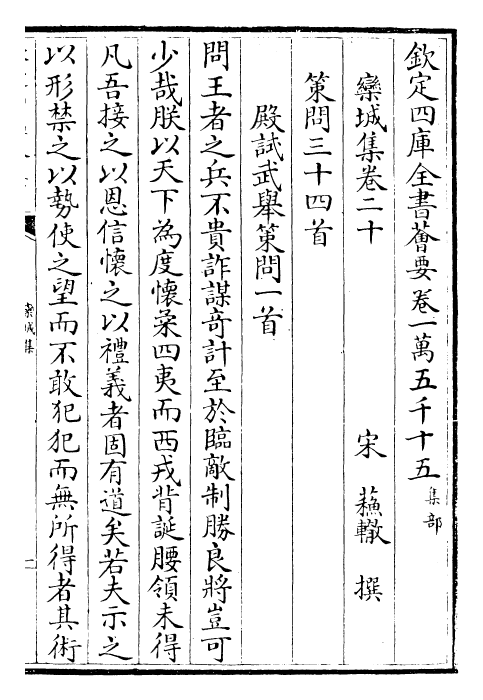 欽定四庫全書薈要卷一萬五千十五集部
欒城集卷二十
宋 蘓轍 撰
策問三十四首
殿試武舉策問一首
問王者之兵不貴詐謀竒計至於臨敵制勝良將豈可
少哉朕以天下為度懷柔四夷而西戎背誕腰領未得
凡吾接之以恩信懷之以禮義者固有道矣若夫示之
以形禁之以勢使之望而不敢犯犯而無所得者其術
欒城集